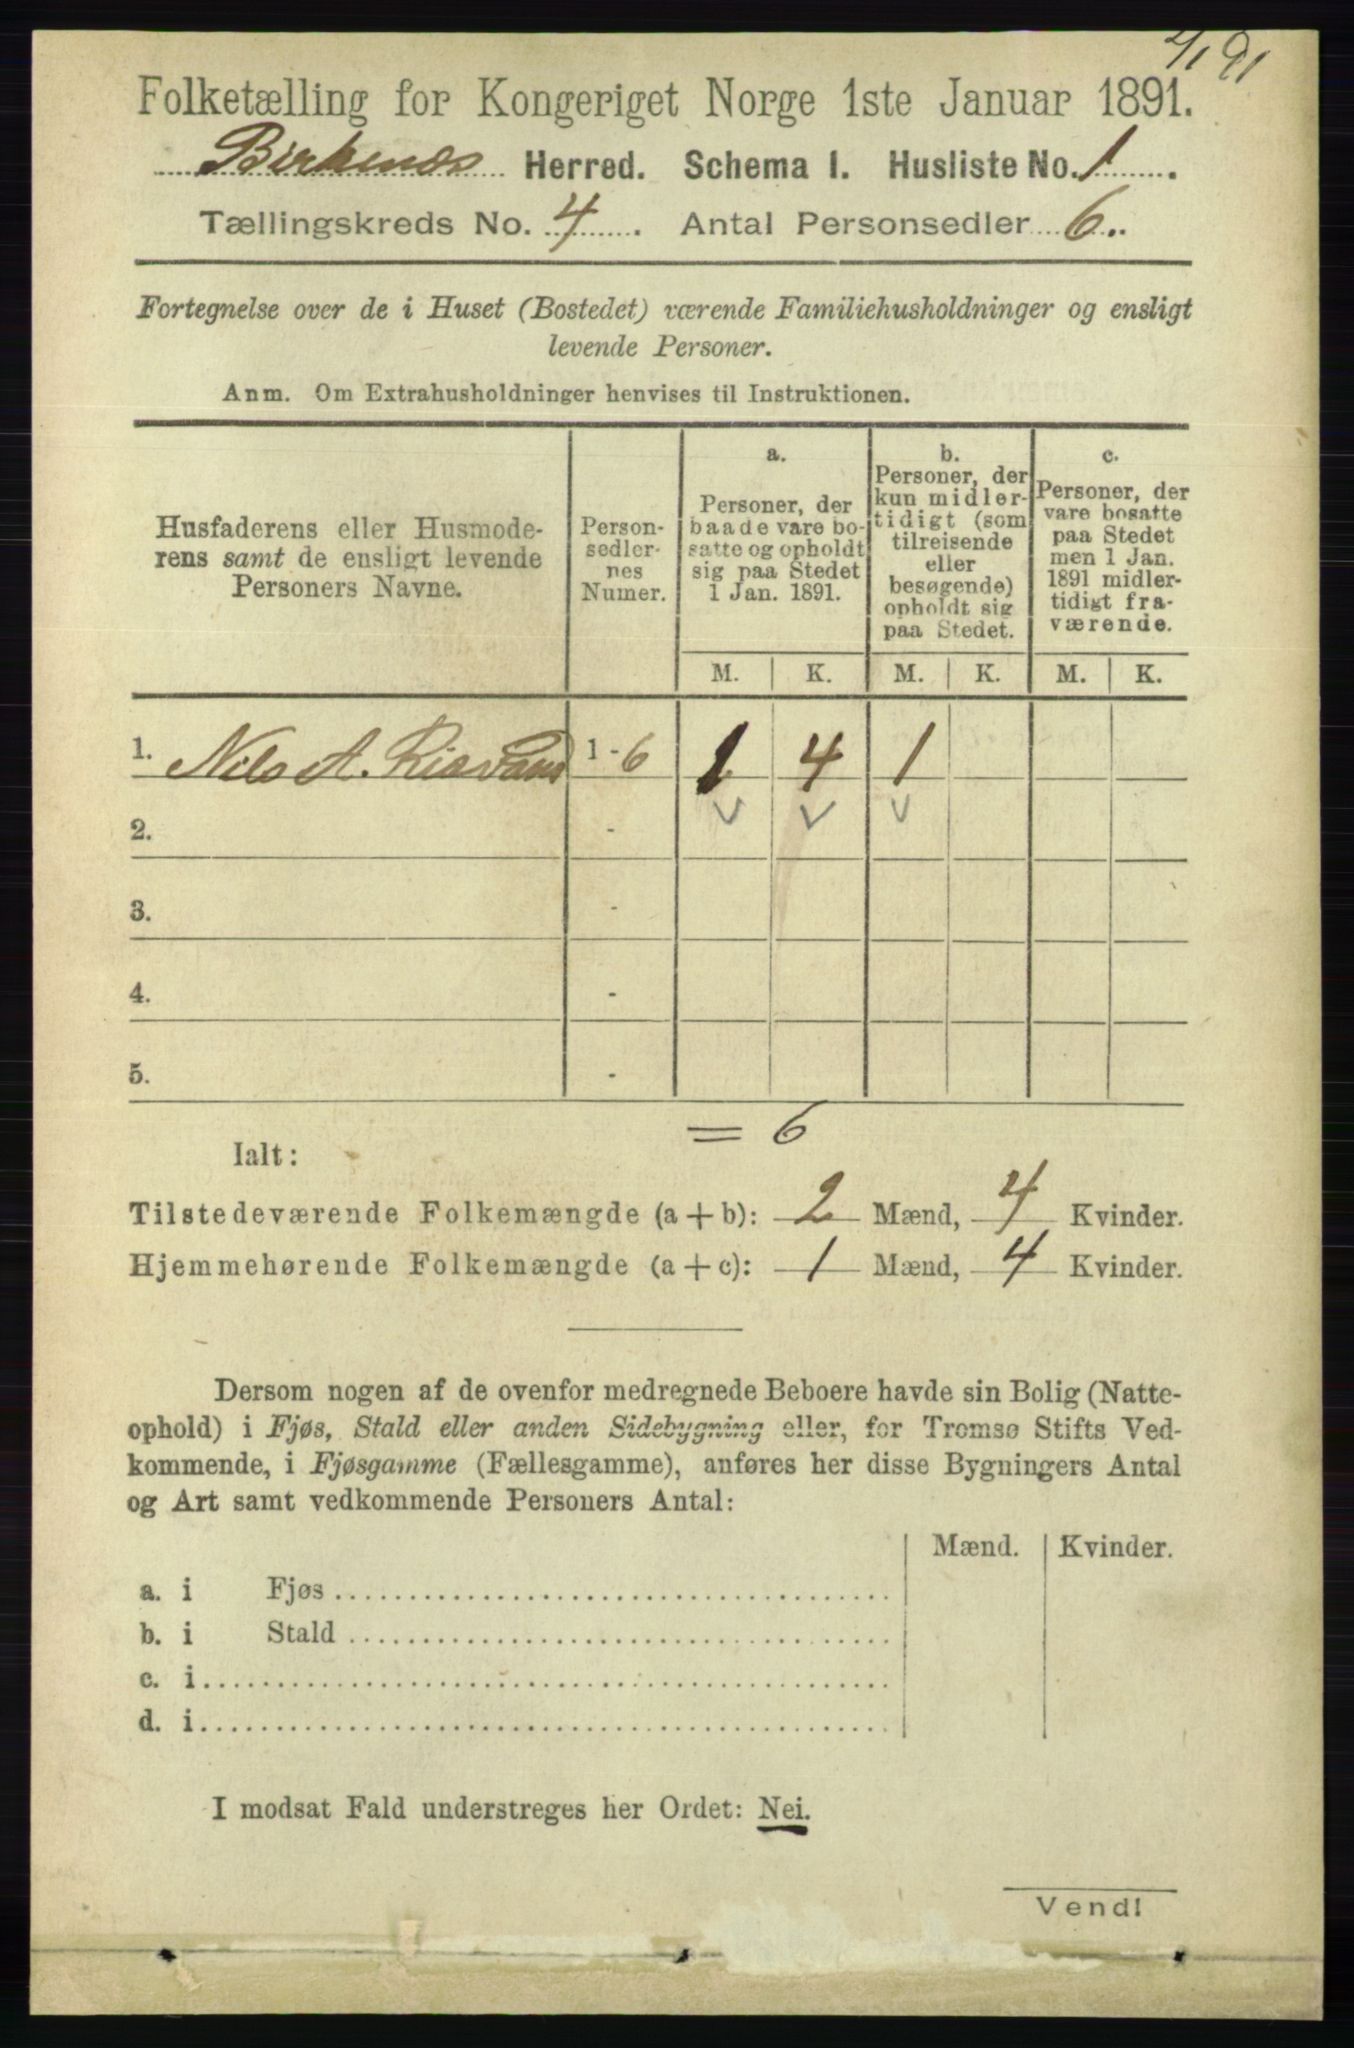 4/1 91
Folketælling for Kongeriget Norge 1ste Januar 1891.
Birkenæs Herred. Schema I. Husliste No. 1.
Tællingskreds No. 4. Antal Personsedler 6.
Fortegnelse over de i Huset (Bostedet) værende Familiehusholdninger og ensligt
levende Personer.
Anm. Om Extrahusholdninger henvises til Instruktionen.
Husfaderens eller Husmode-
rens samt de ensligt levende
Personers Navne.
Person-
sedler-
nes
Numer.
a.
Personer, der
baade vare bo-
satte og opholdt
sig paa Stedet
1 Jan. 1891.
b.
Personer, der
kun midler-
tidigt (som
tilreisende
eller
besøgende)
opholdt sig
paa Stedet.
c.
Personer, der
vare bosatte
paa Stedet
men 1 Jan.
1891 midler-
tidigt fra-
værende.
M. K. M. K. M. K.
1. Nils A. Risvand 1 - 6 1 4 1
2. -
3. -
4. -
5. -
= 6
Ialt:
Tilstedeværende Folkemængde (a + b): 2 Mænd, 4 Kvinder.
Hjemmehørende Folkemængde (a + c): 1 Mænd, 4 Kvinder.
Dersom nogen af de ovenfor medregnede Beboere havde sin Bolig (Natte-
ophold) i Fjøs, Stald eller anden Sidebygning eller, for Tromsø Stifts Ved-
kommende, i Fjøsgamme (Fællesgamme), anføres her disse Bygningers Antal
og Art samt vedkommende Personers Antal:
Mænd. Kvinder.
a. i Fjøs
b. i Stald
c. i
d. i
I modsat Fald understreges her Ordet: Nei.
Vend!